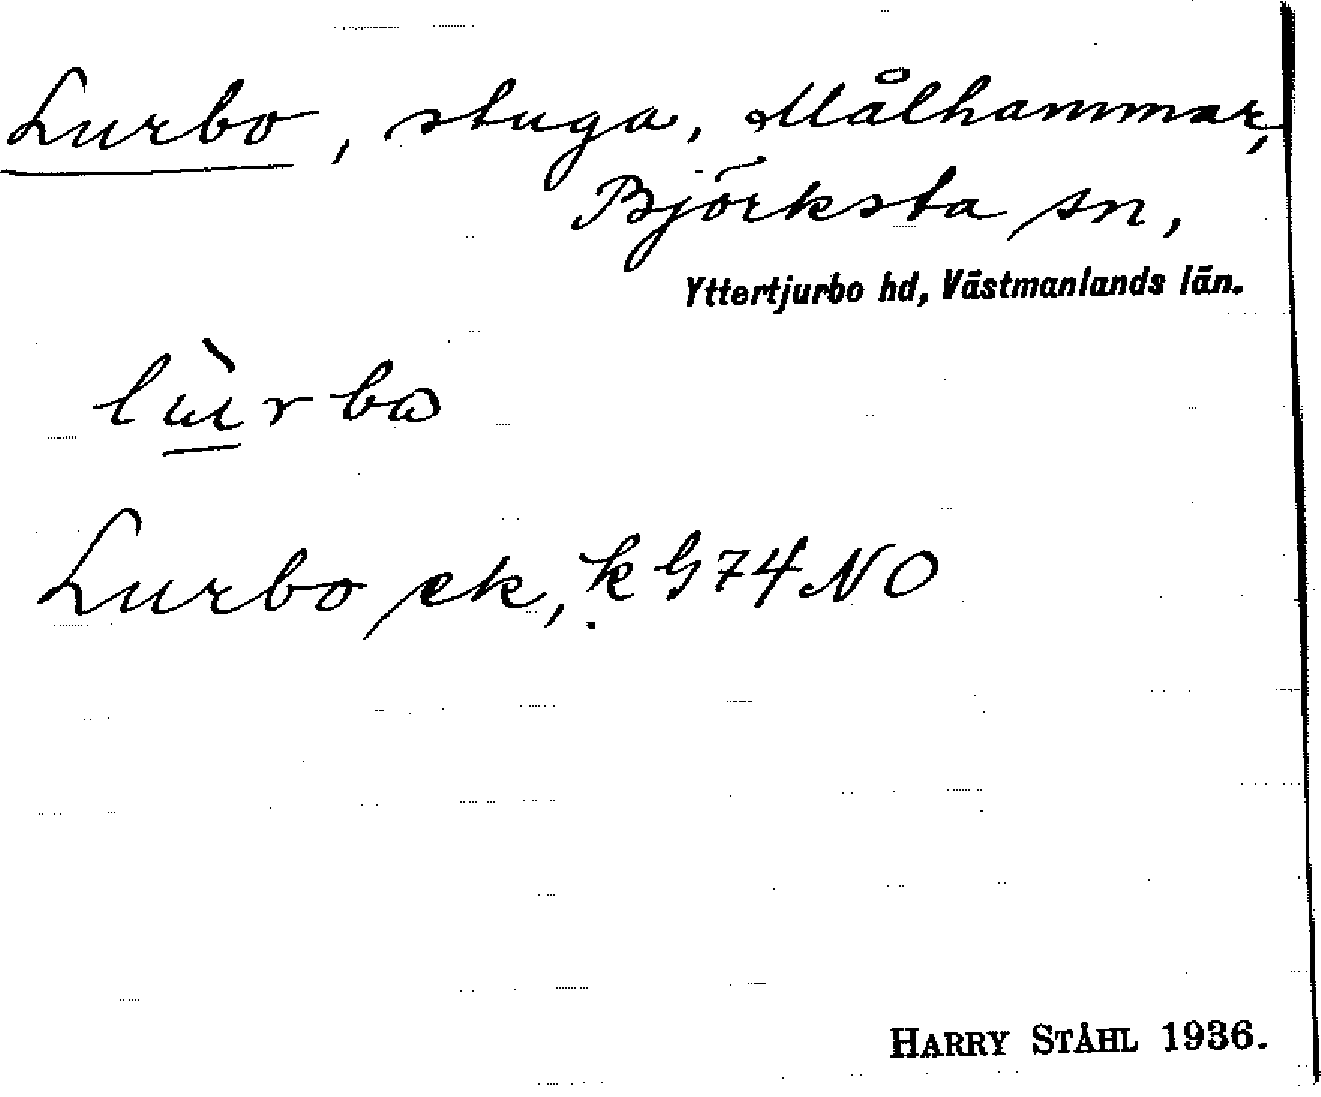 Lurbo, stuga, Målhammar,
Björksta sn,
Yttertjurbo hd, Västmanlands län.
lùrbω
Lurbo ek, k G74 NO
HARRY STÅHL 1936.